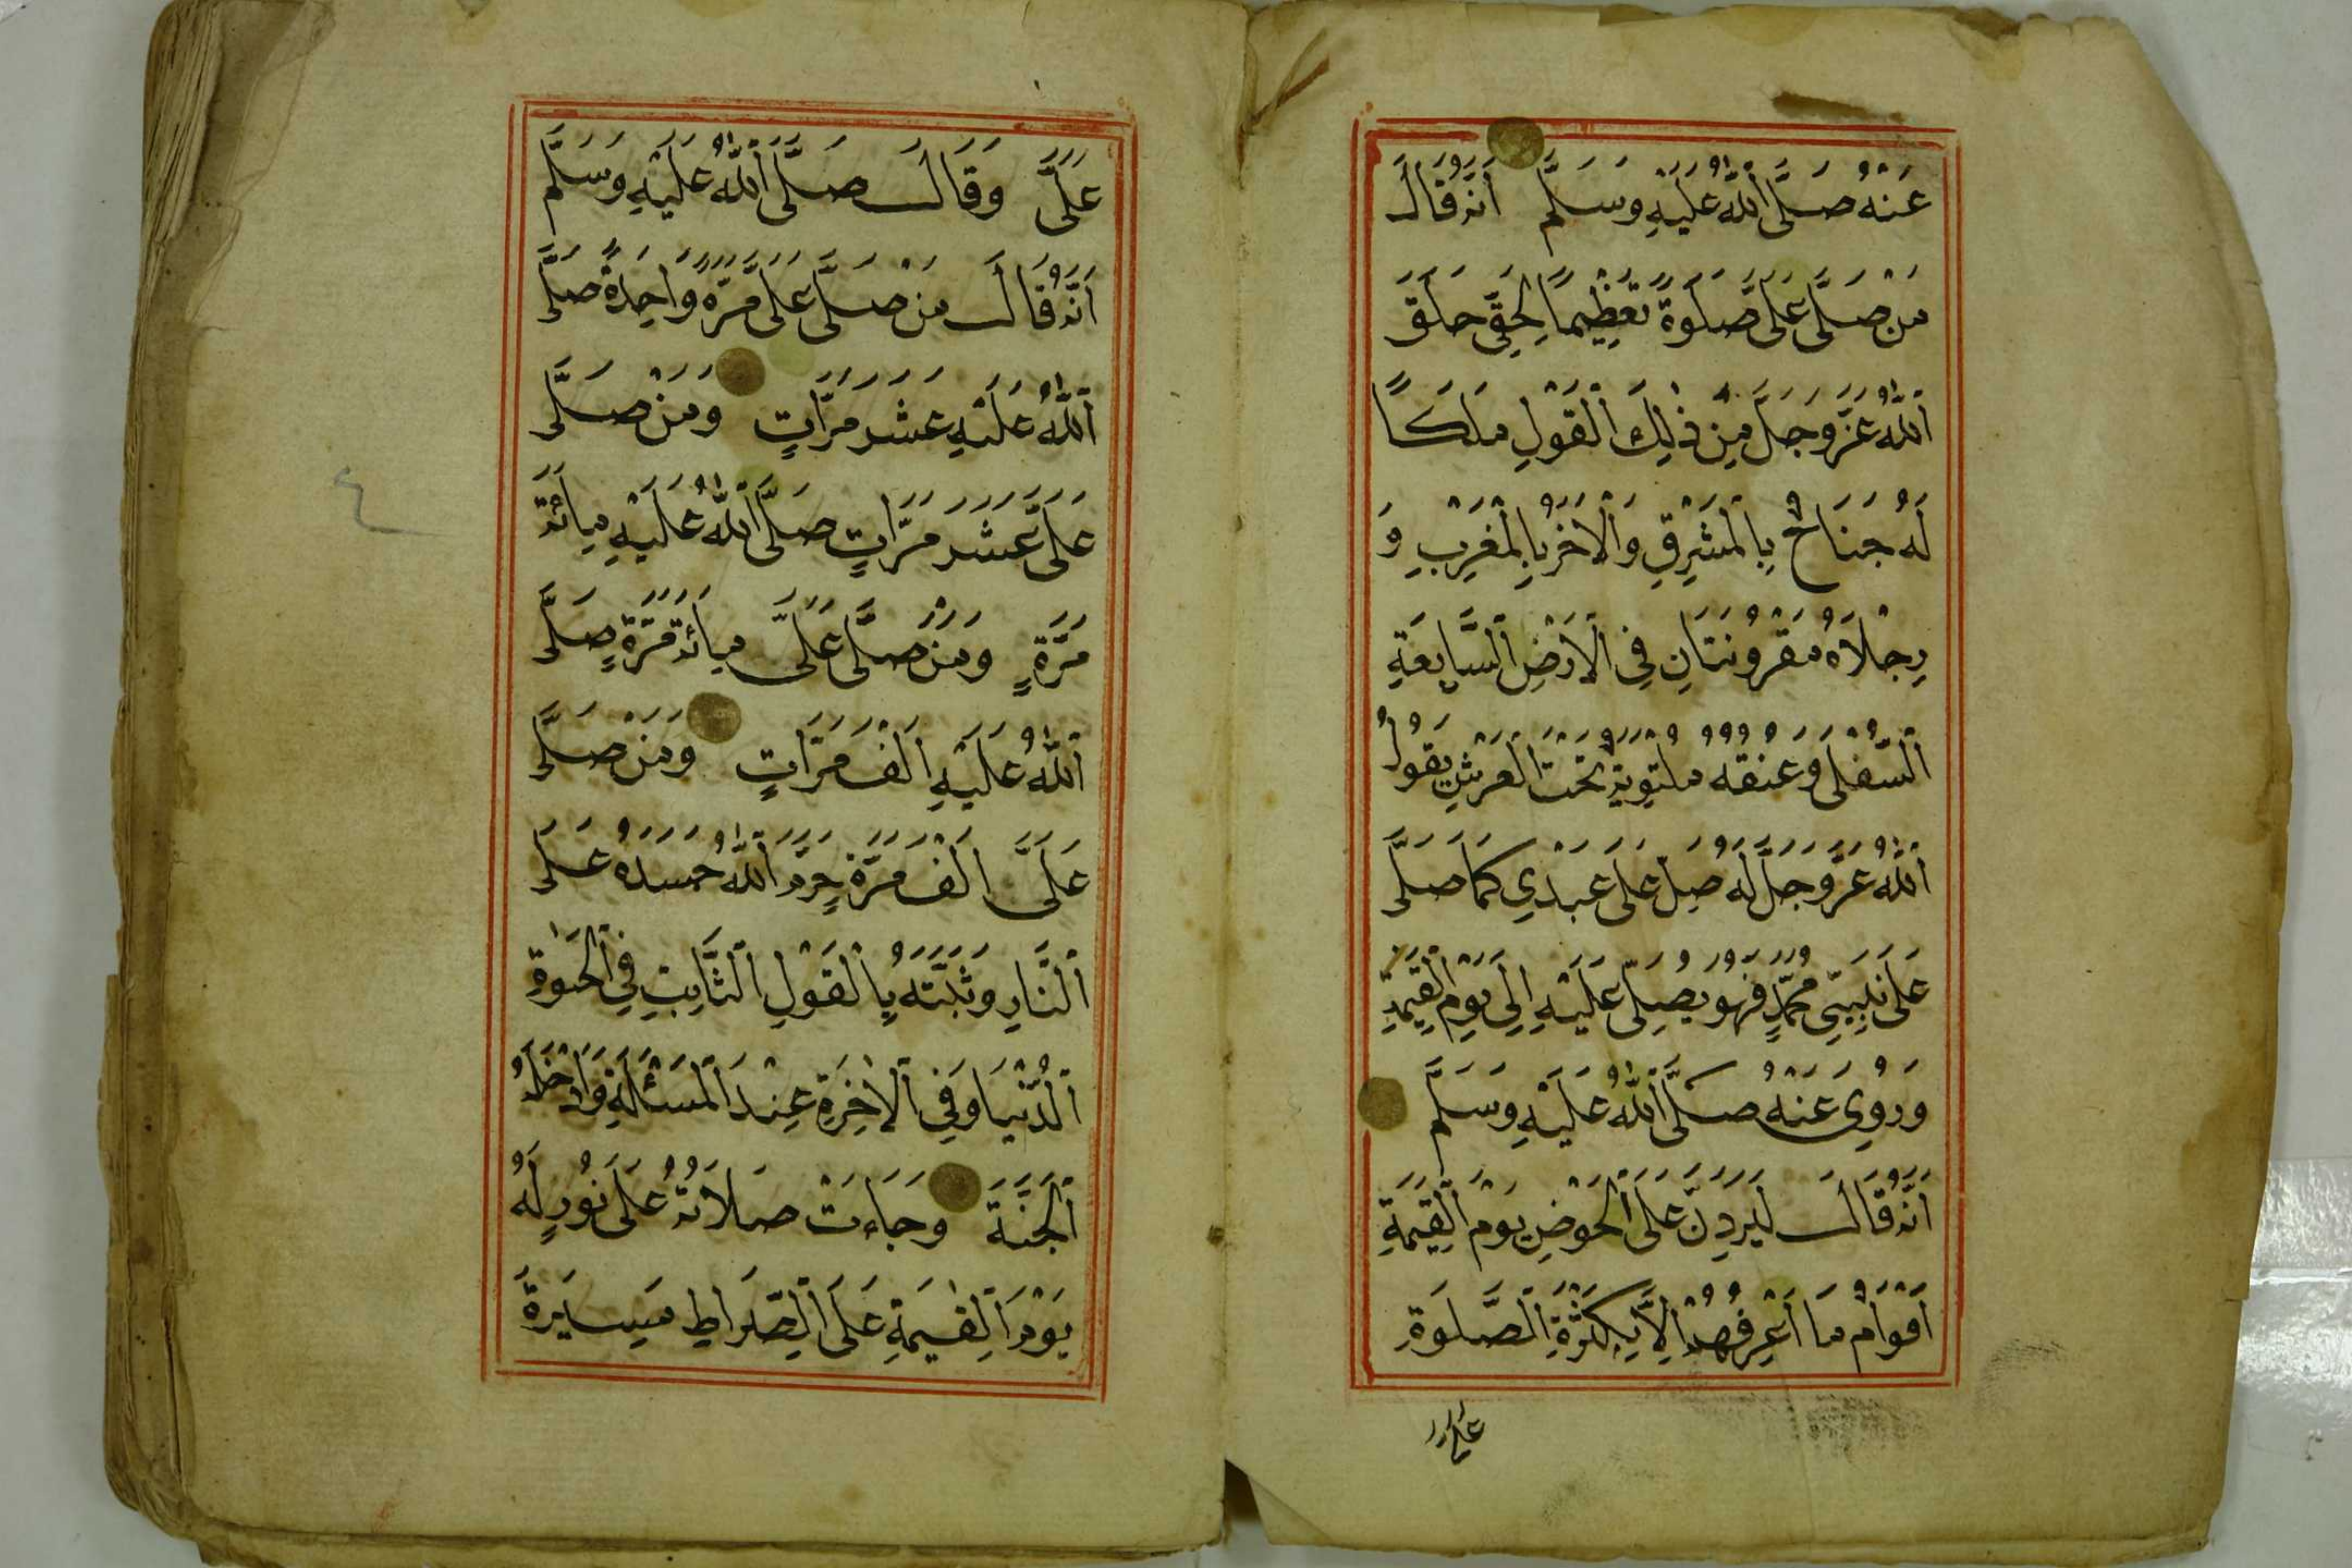 عَنْهُ صَلَّى اَللّٰهُ عَلَيْهِ وَسَلَّمَ اَنَّهُ قَالَ
مَنْ صَلَّى عَلَىَّ صَلَوةً تَعْظِيمًا لِحَقِّى خَلَقَ
اَللّٰهُ عَزَّ وَجَلَّ مِنْ ذٰلِكَ اَلْقَوْلِ مَلَكًا
لَهُ جَنَاحٌ بِالْمَشْرِقِ وَاْلاٰخَرُ بِالْمَغْرِبِ وَ
رِجْلاَهُ مَقْرُونَتَانِ فِى اْلاَرْضِ اَلسَّابِعَةِ
اَلسُّفْلَى وَعُنُقُهُ مُلْتَوِيَةٌ تَحْتَ اَلْعَرْشِ يَقُولُ
اَللّٰهُ عَزَّ وَجَلَّ لَهُ صَلِّ عَلَى عَبْدِي كَمَا صَلَّى
عَلَى نَبِيِّى مُحَمَّدٍ فَهُوَ يُصَلِّى عَلَيْهِ اِلَى يَوْمِ اَلْقِيٰمَةِ
وَرُوِىَ عَنْهُ صَلَّى اَللّٰهُ عَلَيْهِ وَسَلَّمَ
اَنَّهُ قَالَ لَيَرِدَنَّ عَلَىَّ اَلْحَوْضَ يَوْمَ اَلْقِيٰمَةِ
اَقْوَامٌ مَا اَعْرِفُهُمْ اِلاَّ بِكَثْرَةِ اَلصَّلَوةِ
عَلَىَّ
عَلَىَّ وَقَالَ صَلَّى اَللّٰهُ عَلَيْهِ وَسَلَّمَ
اَنَّهُ قَالَ مَنْ صَلَّى عَلَىَّ مَرَّةً وَاحِدَةً صَلَّى
اَللّٰهُ عَلَيْهِ عَشَرَ مَرَّاتٍ وَمَنْ صَلَّى
عَلَىَّ عَشَرَ مَرَّاتٍ صَلَّى اَللّٰهُ عَلَيْهِ مِائَةَ
مَرَّةٍ وَمَنْ صَلَّى عَلَىَّ مِائَةَ مَرَّةٍ صَلَّى
اَللّٰهُ عَلَيْهِ اَلْفَ مَرَّاتٍ وَمَنْ صَلَّى
عَلَىَّ اَلْفَ مَرَّةٍ حَرَّمَ اَللّٰهُ جَسَدَهُ عَلَى
اَلنَّارِ وَثَبَّتَهُ بِالْقَوْلِ اَلثَّابِتِ فِى اَلْحَيٰوةِ
اَلدُّنْيَا وَفِى اْلاٰخِرَةِ عِنْدَ اَلْمَسْئَلَةِ وَاَدْخَلَهُ
اَلْجَنَّةَ وَجَاءَتْ صَلاَتُهُ عَلَىَّ نُورٍ لَهُ
يَوْمَ اَلْقِيٰمَةِ عَلَى اَلصِّرَاطِ مَسِيرَةَ
٤